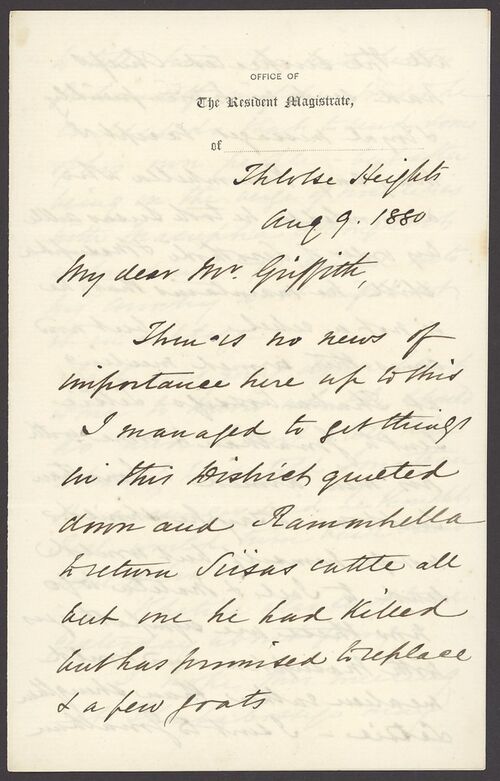 OFFICE OF
The Resident Magistrate,
of
Thlotse Heights
Aug 9. 1880
My dear Mr. Griffith,
There is no news of
importance here up to this
I managed to get things
in this District quieted
down and Ramanhella
to return Siisas cattle all
but one he had killed
but has promised to replace
& a few goats